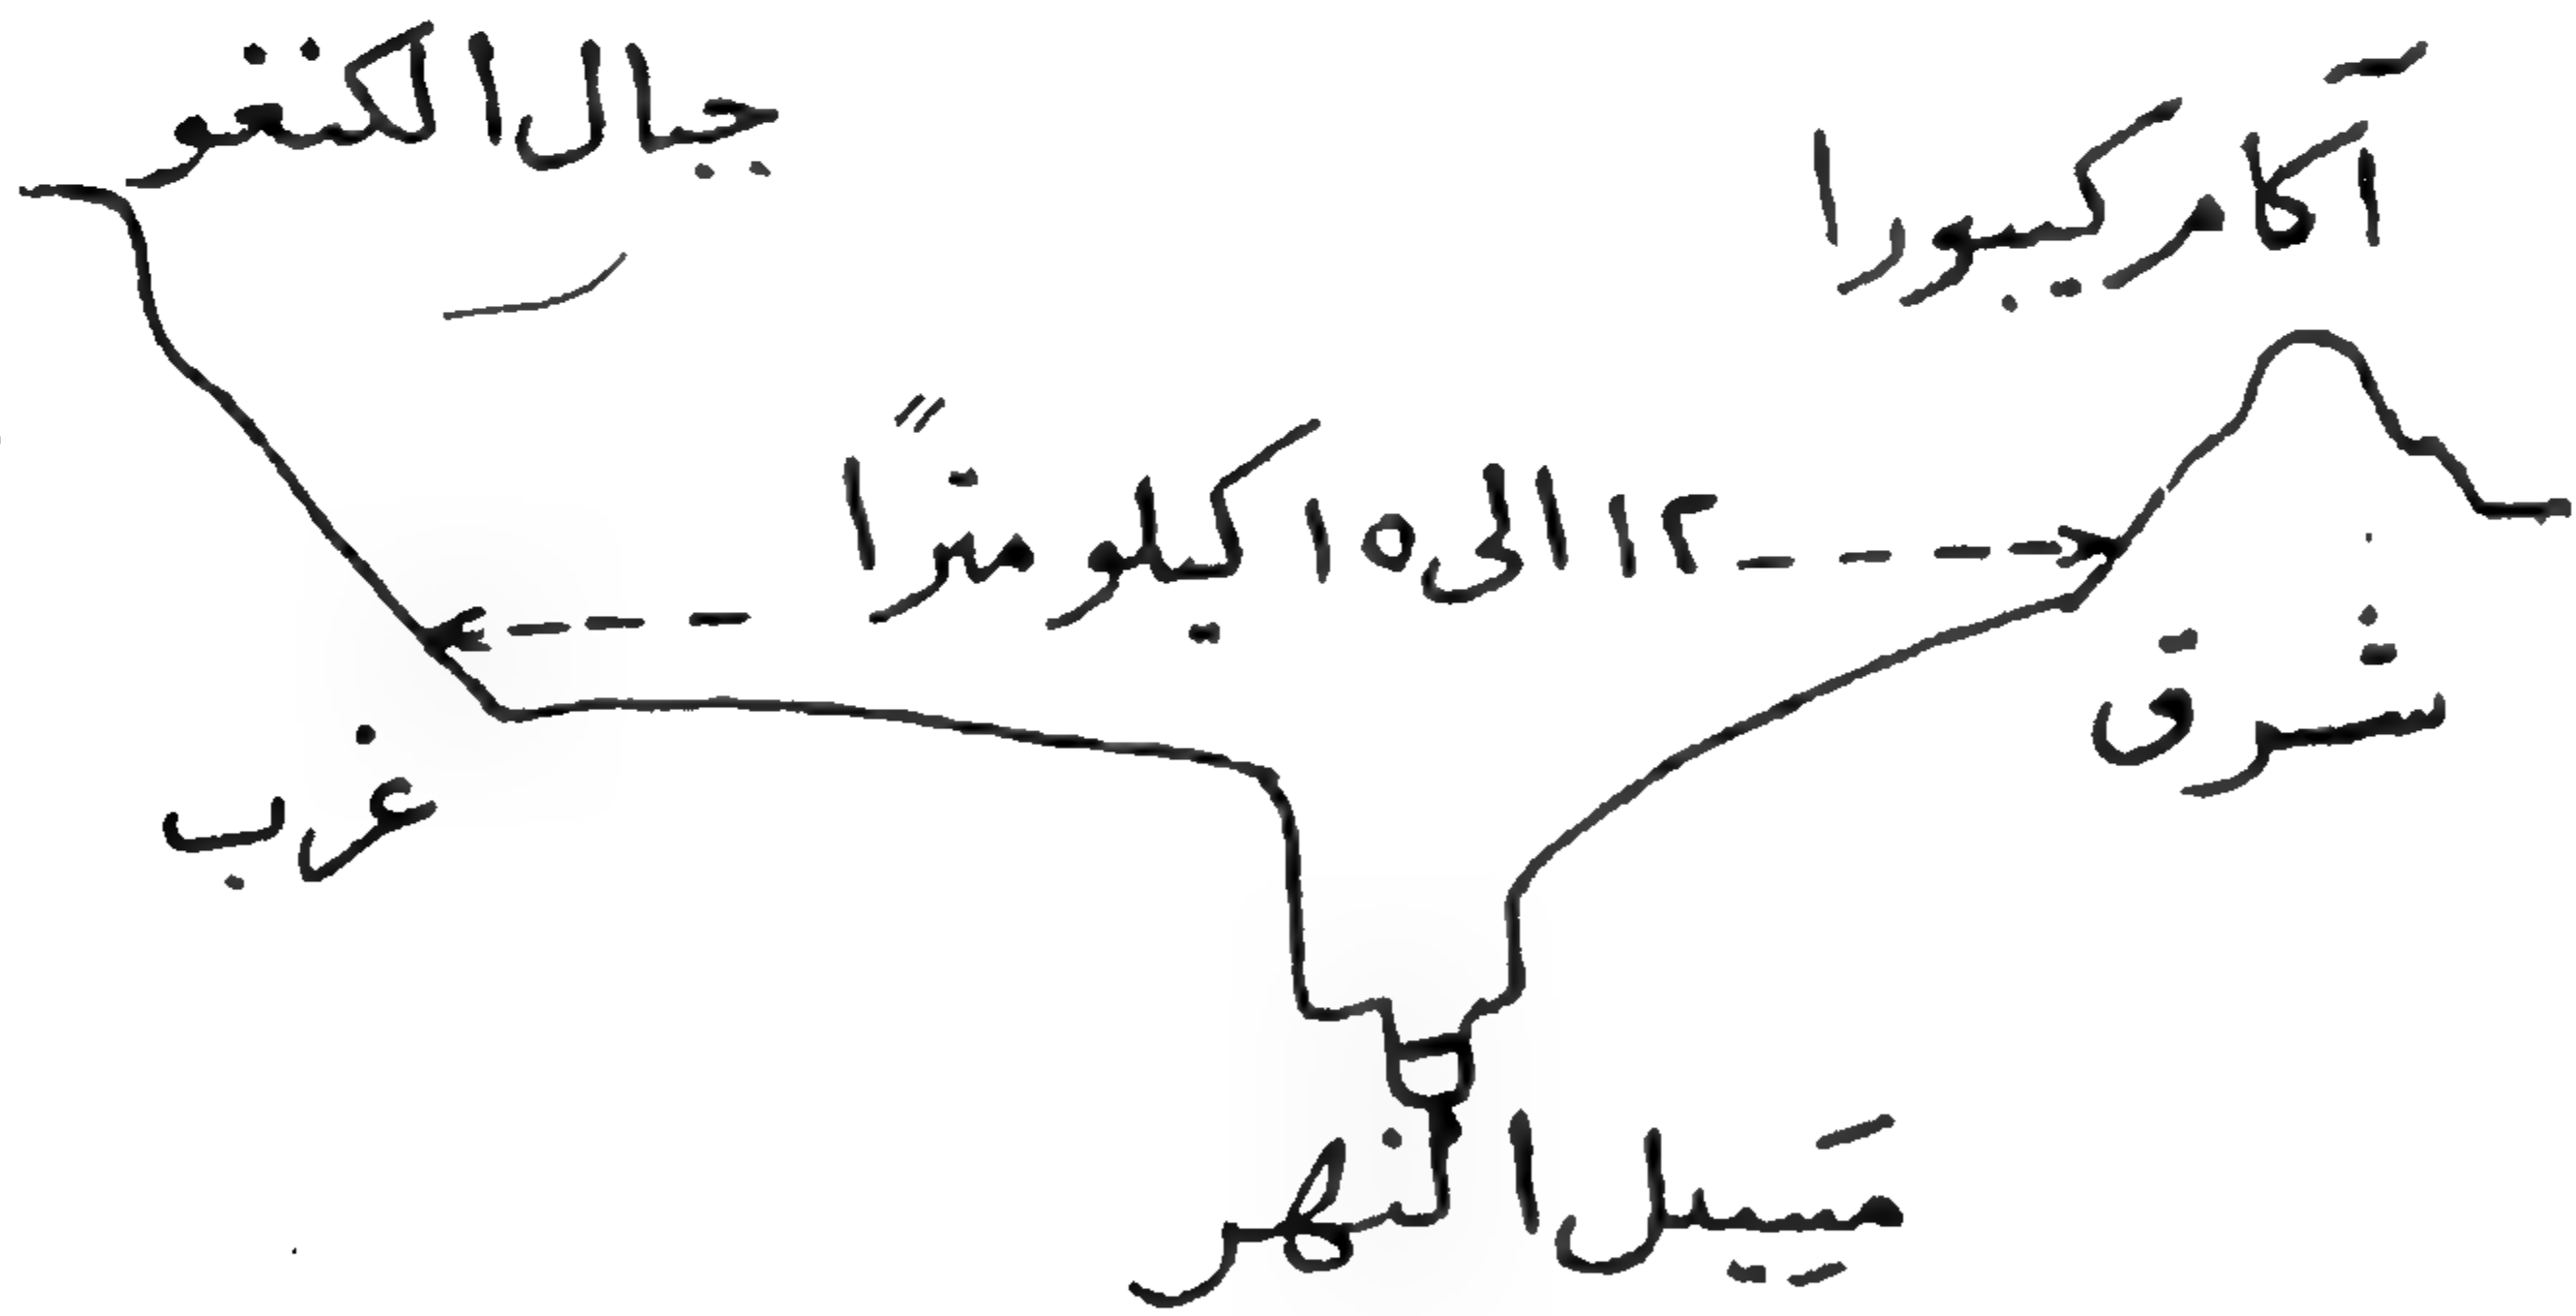 جبال الكنغو
آكام كيبورا
١٢ الى ١٥ كيلو مترًا
شرق
غرب
مَسِيل النهر